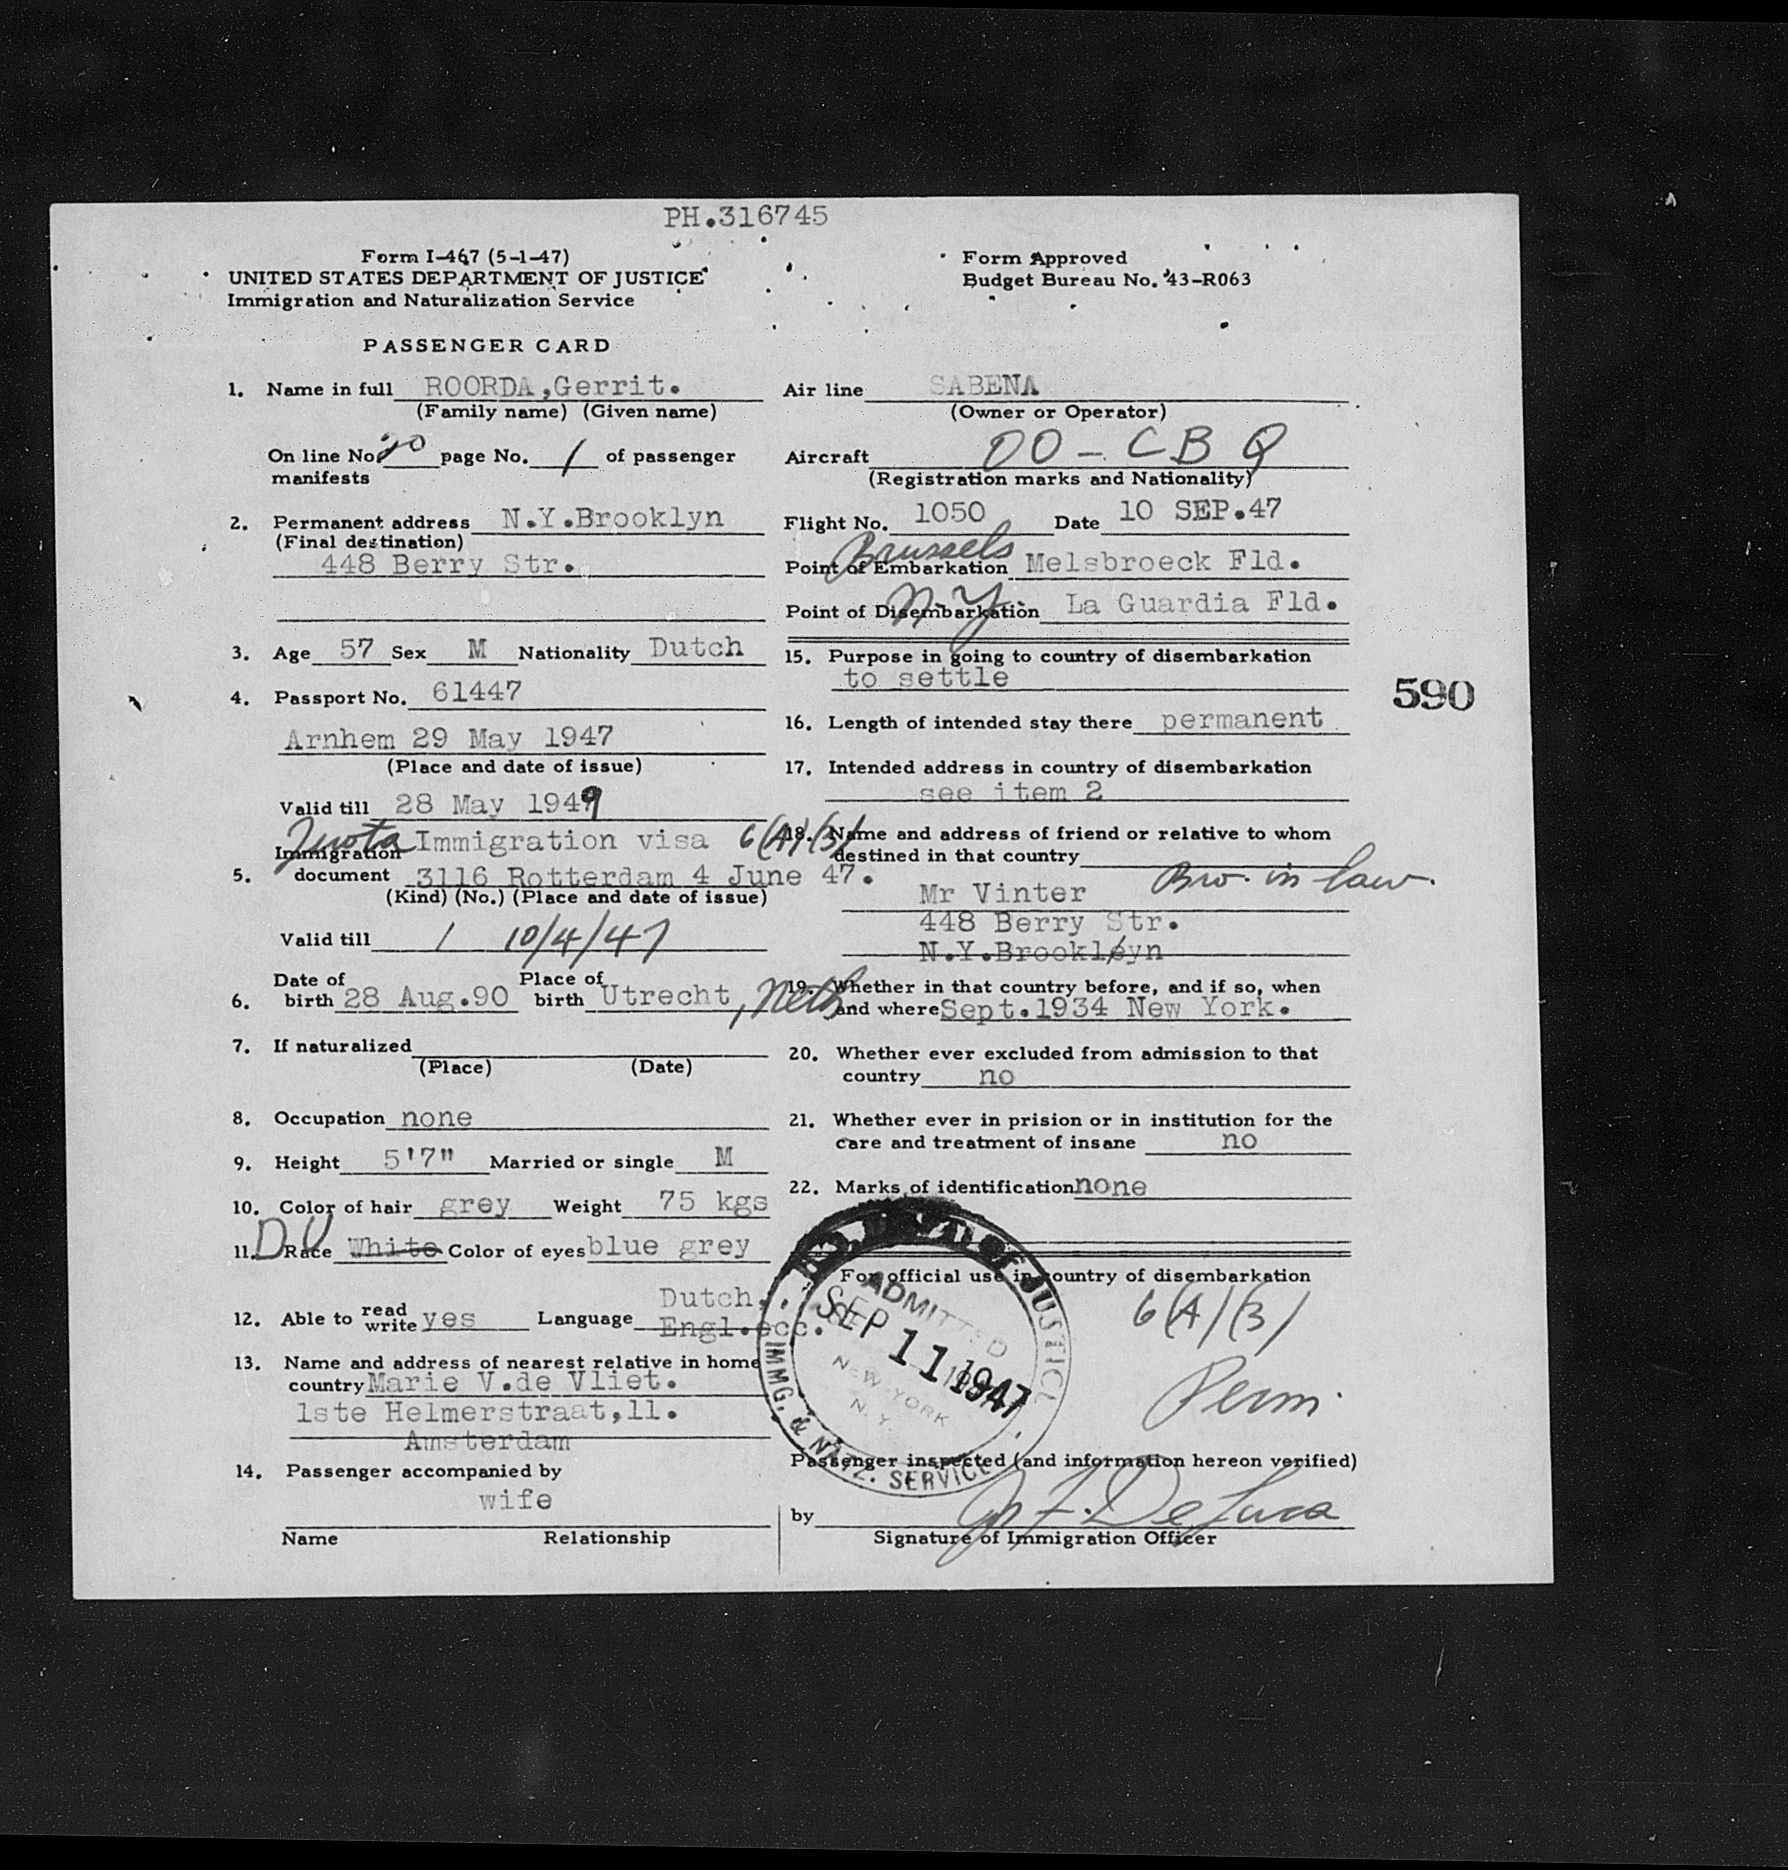 PH.316745
Form I-467 (5-1-47)
UNITED STATES DEPARTMENT OF JUSTICE
Immigration and Naturalization Service
Form Approved
Budget Bureau No. 43-R063
PASSENGER CARD
1. Name in full ROORDA,Gerrit.
(Family name) (Given name)
On line No 20 page No. 1 of passenger
manifests
2. Permanent address N.Y.Brooklyn
(Final destination)
448 Berry Str.
3. Age 57 Sex M Nationality Dutch
4. Passport No. 61447
Arnhem 29 May 1947
(Place and date of issue)
Valid till 28 May 1949
Quota Immigration visa 6(A)(3)
Immigration
5. document 3116 Rotterdam 4 June 47.
(Kind) (No.) (Place and date of issue)
Valid till 10/4/47
Date of Place of
6. birth 28 Aug.90 birth Utrecht, Neth
7. If naturalized
(Place) (Date)
8. Occupation none
9. Height 5'7" Married or single M
10. Color of hair grey Weight 75 kgs
11. DU Race White Color of eyes blue grey
12. Able to read write yes Language Dutch,
Engl.ecc.
13. Name and address of nearest relative in home
country Marie V.de Vliet.
1ste Helmerstraat,11.
Amsterdam
14. Passenger accompanied by
wife
Name Relationship
Air line SABENA
(Owner or Operator)
Aircraft OO-CBQ
(Registration marks and Nationality)
Flight No. 1050 Date 10 SEP.47
Brussels
Point of Embarkation Melsbroeck Fld.
N.Y.
Point of Disembarkation La Guardia Fld.
15. Purpose in going to country of disembarkation
to settle
590
16. Length of intended stay there permanent
17. Intended address in country of disembarkation
see item 2
18. Name and address of friend or relative to whom
destined in that country
Bro. in law.
Mr Vinter
448 Berry Str.
N.Y.Brookleyn
19. Whether in that country before, and if so, when
and where Sept.1934 New York.
20. Whether ever excluded from admission to that
country no
21. Whether ever in prision or in institution for the
care and treatment of insane no
22. Marks of identification none
For official use in country of disembarkation
6(A)(3)
Perm.
OF JUSTICE
ADMITTED
SEP 11 1947
NEW YORK
N.Y.
IMMG. & NATZ. SERVICE
Passenger inspected (and information hereon verified)
by De Luca
Signature of Immigration Officer